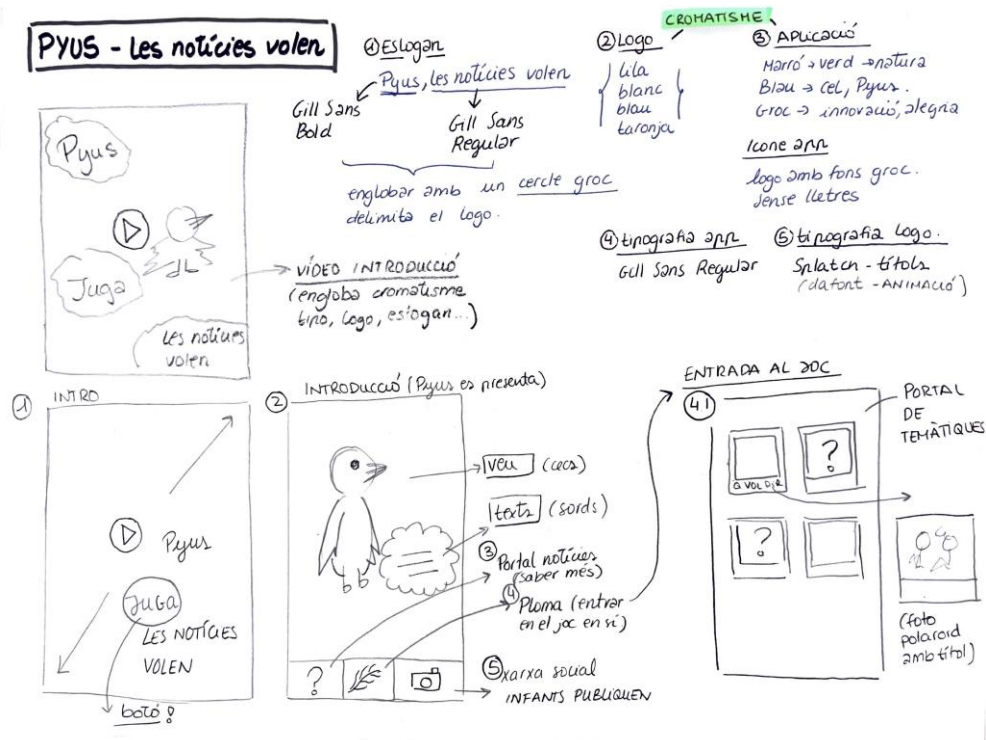 PYUS - Les notícies volen
CROMATISME
① Eslogan
Pyus, les notícies volen
Gill Sans
Bold
Gill Sans
Regular
englobar amb un cercle groc
delimita el logo.
② Logo
lila
blanc
blau
taronja
③ Aplicació
Marró → verd → natura
Blau → cel, Pyus.
Groc → innovació, alegria
Icone app
logo amb fons groc.
sense lletres
④ tipografia app
Gill Sans Regular
⑤ tipografia logo.
Splatch - títols
(dafont - ANIMACIÓ)
Pyus
Juga
Les notícies
volen
VÍDEO INTRODUCCIÓ
(engloba cromatisme
tipo, logo, eslogan...)
① INTRO
Pyus
JUGA
LES NOTÍCIES
VOLEN
botó!
② INTRODUCCIÓ (Pyus es presenta)
veu (cecs)
texts (sords)
③ Portal notícies
(saber més)
④ Ploma (entrar
en el joc en sí)
⑤ xarxa social
INFANTS PUBLIQUEN
?
ENTRADA AL JOC
41
?
?
PORTAL
DE
TEMÀTIQUES
(foto
polaroid
amb títol)